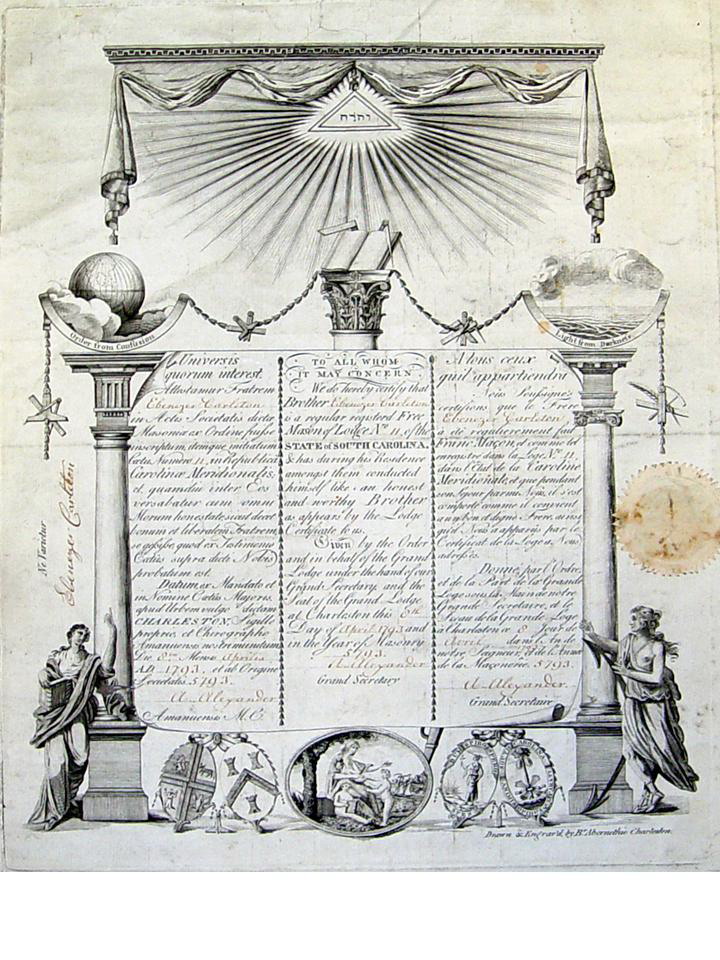 יהוה
Order from Confusion
Light from Darkness
Universis
quorum interest.
Attestamur Fratrem
Ebenezer Carleton
in Actis Societatis dictæ
Masoniæ ex Ordine fuisse
inscriptum, itemque initiatum
Cætus Numero 11. in Republica
Carolinæ Meridionalis;
et, quamdiu inter Eos
versabatur cum omni
Morum honestate, sicut decet
bonum et liberalem Fratrem,
se gessisse, quod ex Testimonio
Cætus supra dicti Nobis
probatum est.
Datum ex Mandato et
in Nomine Cætus Majoris,
apud Urbem vulgo dictam
CHARLESTON, Sigillo
proprio, et Chirographo
Amanuensis nostri munitum
Die 8vo Mense Aprilis
A.D. 1793, et ab Origine
Societatis 5793.
A. Alexander
Amanuensis M.C.
TO ALL WHOM
IT MAY CONCERN
We do hereby certify that
Brother Ebenezer Carleton
is a regular registerd Free
Mason of Lodge No. 11. of the
STATE of SOUTH CAROLINA,
& has during his Residence
amongst them conducted
himself like an honest
and worthy Brother
as appears by the Lodge
Certificate to us.
GIVEN by the Order
and in behalf of the Grand
Lodge under the hand of our
Grand Secretary, and the
Seal of the Grand Lodge
at Charleston this 8th
Day of April 1793 and
in the Year of Masonry
5793.
A. Alexander
Grand Secretary
A tous ceux
qu'il appartiendra
Nous Soussignés
certifions que le Frere
Ebenezer Carleton
a été regulierement fait
Franc Maçon, et comme tel
enregistre dans la Loge No. 11.
dans l'Etat de la Caroline
Meridionale, et que pendant
son Sejour parmi Nous, il s'est
comporté comme il convient
a un bon et digne Frere, ainsi
qu'il Nous a apparus par le
Certificat de la Loge a Nous
adressés.
Donné, par l'Ordre,
et de la Part de la Grande
Loge sous la Main de notre
Grande Secretaire, et le
Sceau de la Grande Loge
a Charleston ce 8 Jour de
Avril dans l'An de
notre Seigneur, et de l'Année
de la Maçonerie. 5793.
A. Alexander
Grand Secretaire
Ne Varietur
Ebenezer Carleton
Drawn & Engrav'd, by Br. Abernethie Charleston.